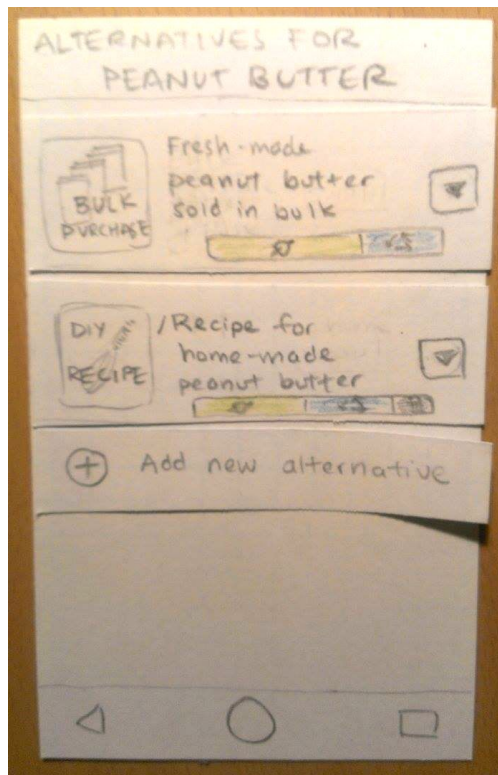 ALTERNATIVES FOR
PEANUT BUTTER
BULK
PURCHASE
Fresh-made
peanut butter
sold in bulk
DIY
RECIPE
/Recipe for
home-made
peanut butter
+ Add new alternative